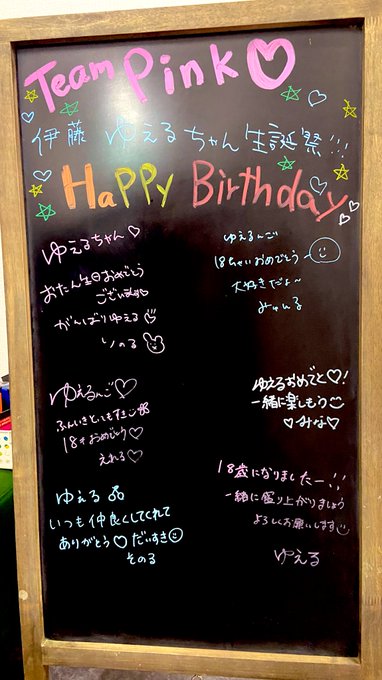 Team Pink♡
伊藤 ゆえるちゃん生誕祭!!!
HaPPy Birthday
ゆえるちゃん♡
おたん生日おめでとう
ございます
がんばりゆえる
りのる
ゆえるんご
18ちゃいおめでとう〜
大好きだよ〜
みゅいる
ゆえるんご♡
ふんいきとってもすきだ
18才おめでとう♡
えれる♡
ゆえるおめでと♡!
一緒に楽しもう
♡みな♡
ゆえる
いつも仲良くしてくれて
ありがとう♡だいすき
そのる
18歳になりましたー!!
一緒に盛り上がりましょう
よろしくお願いします
ゆえる